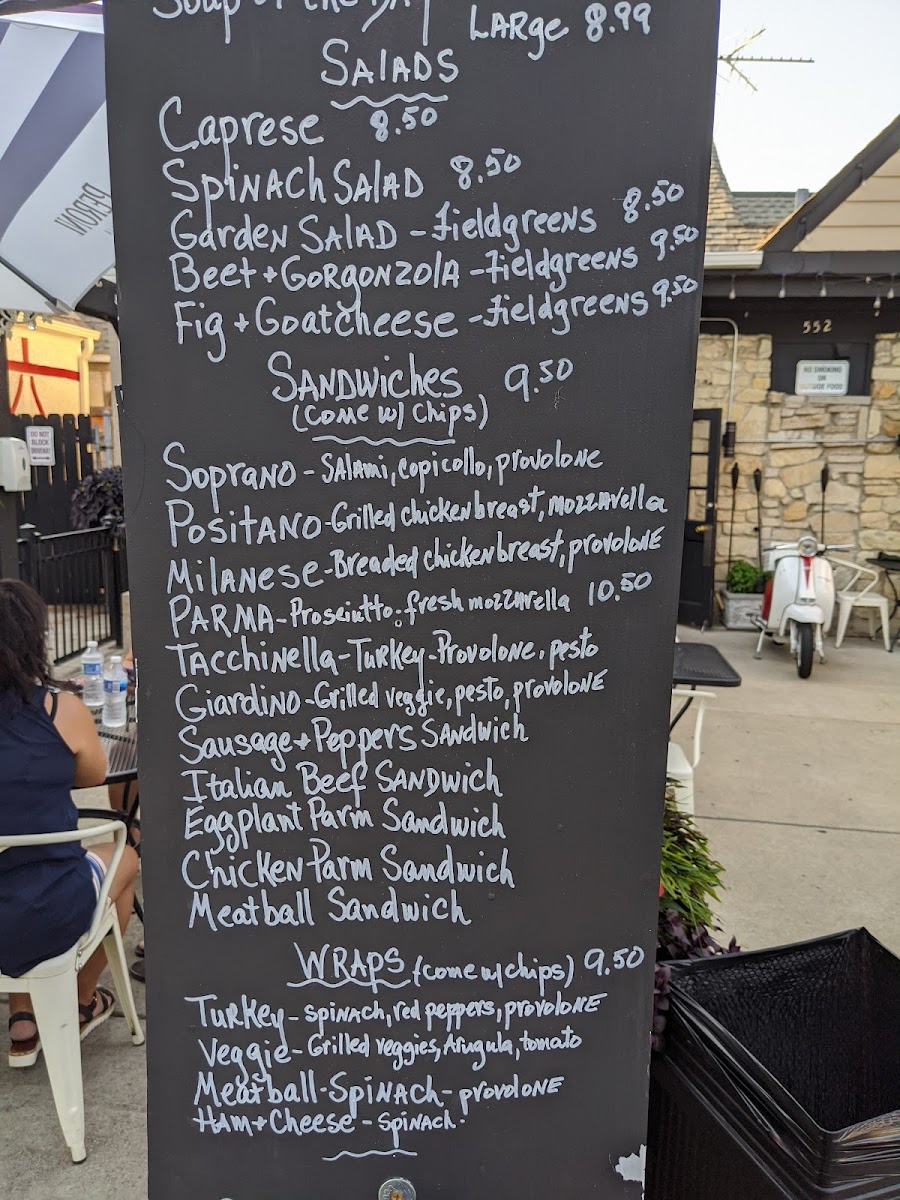 Soup of the Day
Large 8.99
Salads
Caprese 8.50
Spinach Salad 8.50
Garden Salad - Fieldgreens 8.50
Beet + Gorgonzola - Fieldgreens 9.50
Fig + Goatcheese - Fieldgreens 9.50
Sandwiches 9.50
(come w/ chips)
Soprano - Salami, copicollo, provolone
Positano - Grilled chicken breast, mozzarella
Milanese - Breaded chicken breast, provolone
Parma - Prosciutto - fresh mozzarella 10.50
Tacchinella - Turkey - Provolone, pesto
Giardino - Grilled veggie, pesto, provolone
Sausage + Peppers Sandwich
Italian Beef Sandwich
Eggplant Parm Sandwich
Chicken Parm Sandwich
Meatball Sandwich
Wraps (come w/ chips) 9.50
Turkey - spinach, red peppers, provolone
Veggie - Grilled veggies, Arugula, tomato
Meatball - Spinach - provolone
Ham + Cheese - spinach.
PERONI
552
NO SMOKING
OR
OUTSIDE FOOD
DO NOT
BLOCK
DRIVEWAY